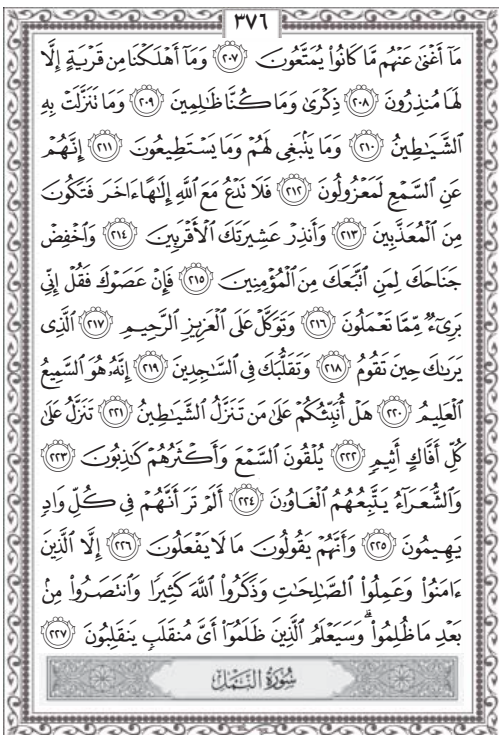 ٣٧٦
مَآ أَغْنَىٰ عَنْهُم مَّا كَانُوا۟ يُمَتَّعُونَ ٢٠٧ وَمَآ أَهْلَكْنَا مِن قَرْيَةٍ إِلَّا
لَهَا مُنذِرُونَ ٢٠٨ ذِكْرَىٰ وَمَا كُنَّا ظَٰلِمِينَ ٢٠٩ وَمَا تَنَزَّلَتْ بِهِ
ٱلشَّيَٰطِينُ ٢١٠ وَمَا يَنۢبَغِى لَهُمْ وَمَا يَسْتَطِيعُونَ ٢١١ إِنَّهُمْ
عَنِ ٱلسَّمْعِ لَمَعْزُولُونَ ٢١٢ فَلَا تَدْعُ مَعَ ٱللَّهِ إِلَٰهًا ءَاخَرَ فَتَكُونَ
مِنَ ٱلْمُعَذَّبِينَ ٢١٣ وَأَنذِرْ عَشِيرَتَكَ ٱلْأَقْرَبِينَ ٢١٤ وَٱخْفِضْ
جَنَاحَكَ لِمَنِ ٱتَّبَعَكَ مِنَ ٱلْمُؤْمِنِينَ ٢١٥ فَإِنْ عَصَوْكَ فَقُلْ إِنِّى
بَرِىٓءٌ مِّمَّا تَعْمَلُونَ ٢١٦ وَتَوَكَّلْ عَلَى ٱلْعَزِيزِ ٱلرَّحِيمِ ٢١٧ ٱلَّذِى
يَرَىٰكَ حِينَ تَقُومُ ٢١٨ وَتَقَلُّبَكَ فِى ٱلسَّٰجِدِينَ ٢١٩ إِنَّهُۥ هُوَ ٱلسَّمِيعُ
ٱلْعَلِيمُ ٢٢٠ هَلْ أُنَبِّئُكُمْ عَلَىٰ مَن تَنَزَّلُ ٱلشَّيَٰطِينُ ٢٢١ تَنَزَّلُ عَلَىٰ
كُلِّ أَفَّاكٍ أَثِيمٍ ٢٢٢ يُلْقُونَ ٱلسَّمْعَ وَأَكْثَرُهُمْ كَٰذِبُونَ ٢٢٣
وَٱلشُّعَرَآءُ يَتَّبِعُهُمُ ٱلْغَاوُۥنَ ٢٢٤ أَلَمْ تَرَ أَنَّهُمْ فِى كُلِّ وَادٍ
يَهِيمُونَ ٢٢٥ وَأَنَّهُمْ يَقُولُونَ مَا لَا يَفْعَلُونَ ٢٢٦ إِلَّا ٱلَّذِينَ
ءَامَنُوا۟ وَعَمِلُوا۟ ٱلصَّٰلِحَٰتِ وَذَكَرُوا۟ ٱللَّهَ كَثِيرًا وَٱنتَصَرُوا۟ مِنۢ
بَعْدِ مَا ظُلِمُوا۟ ۗ وَسَيَعْلَمُ ٱلَّذِينَ ظَلَمُوٓا۟ أَىَّ مُنقَلَبٍ يَنقَلِبُونَ ٢٢٧
سُورَةُ النَّمْلِ